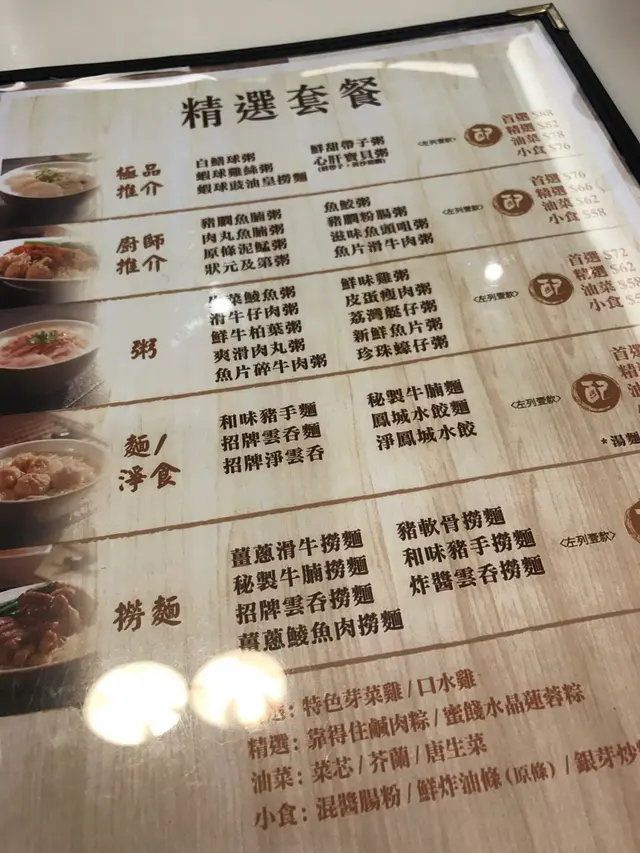 精選套餐
極品推介
白鱔球粥
蝦球雞絲粥
蝦球豉油皇撈麵
鮮甜帶子粥
心肝寶貝粥
<左列壹款>
首選 $88
精選 $82
油菜 $78
小食 $76
廚師推介
豬膶魚腩粥
肉丸魚腩粥
原條泥鯭粥
狀元及第粥
魚鮫粥
豬膶粉腸粥
滋味魚頭咀粥
魚片滑牛肉粥
<左列壹款>
首選 $76
精選 $66
油菜 $62
小食 $58
粥
菜鯪魚粥
滑牛仔肉粥
鮮牛柏葉粥
爽滑肉丸粥
魚片碎牛肉粥
鮮味雞粥
皮蛋瘦肉粥
荔灣艇仔粥
新鮮魚片粥
珍珠蠔仔粥
<左列壹款>
首選 $72
精選 $62
油菜 $58
小食
麵/淨食
和味豬手麵
招牌雲吞麵
招牌淨雲吞
秘製牛腩麵
鳳城水餃麵
淨鳳城水餃
<左列壹款>
首
精
油
*湯麵
撈麵
薑蔥滑牛撈麵
秘製牛腩撈麵
招牌雲吞撈麵
薑蔥鯪魚肉撈麵
豬軟骨撈麵
和味豬手撈麵
炸醬雲吞撈麵
<左列壹款>
選：特色芽菜雞/口水雞
精選：靠得住鹹肉粽/蜜餞水晶蓮蓉粽
油菜：菜芯/芥蘭/唐生菜
小食：混醬腸粉/鮮炸油條(原條)/銀芽炒